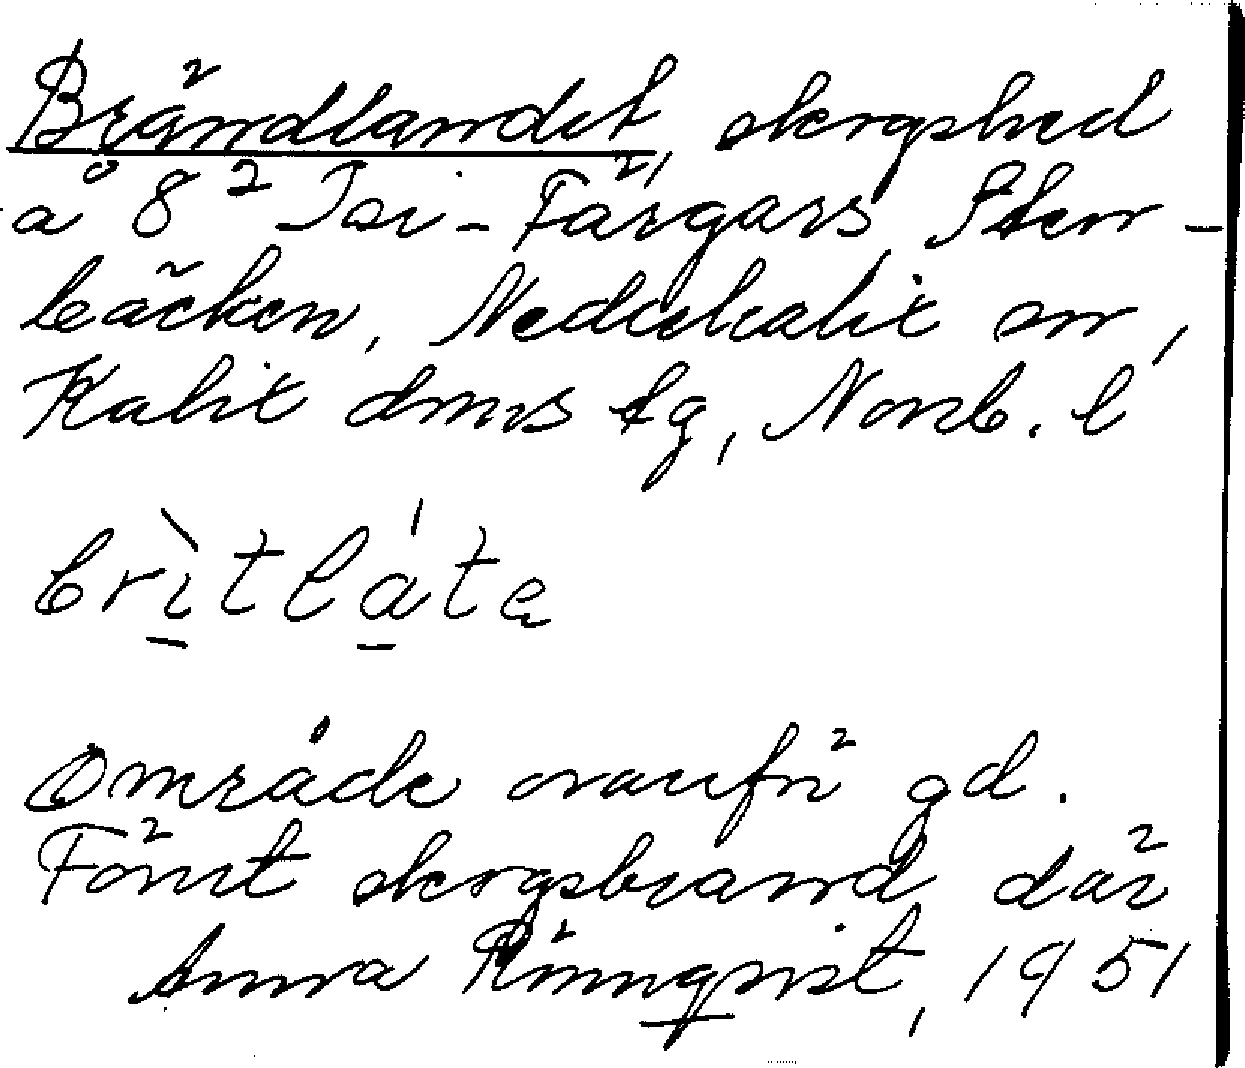 Brändlandet, skogshed
å 8² Isi-Färgars, Sten-
bäcken, Nederkalix sn,
Kalix dmns tg, Norrb. l
britláte
Område ovanför gd.
Förut skogsbrand där
Anna Rönnqvist, 1951